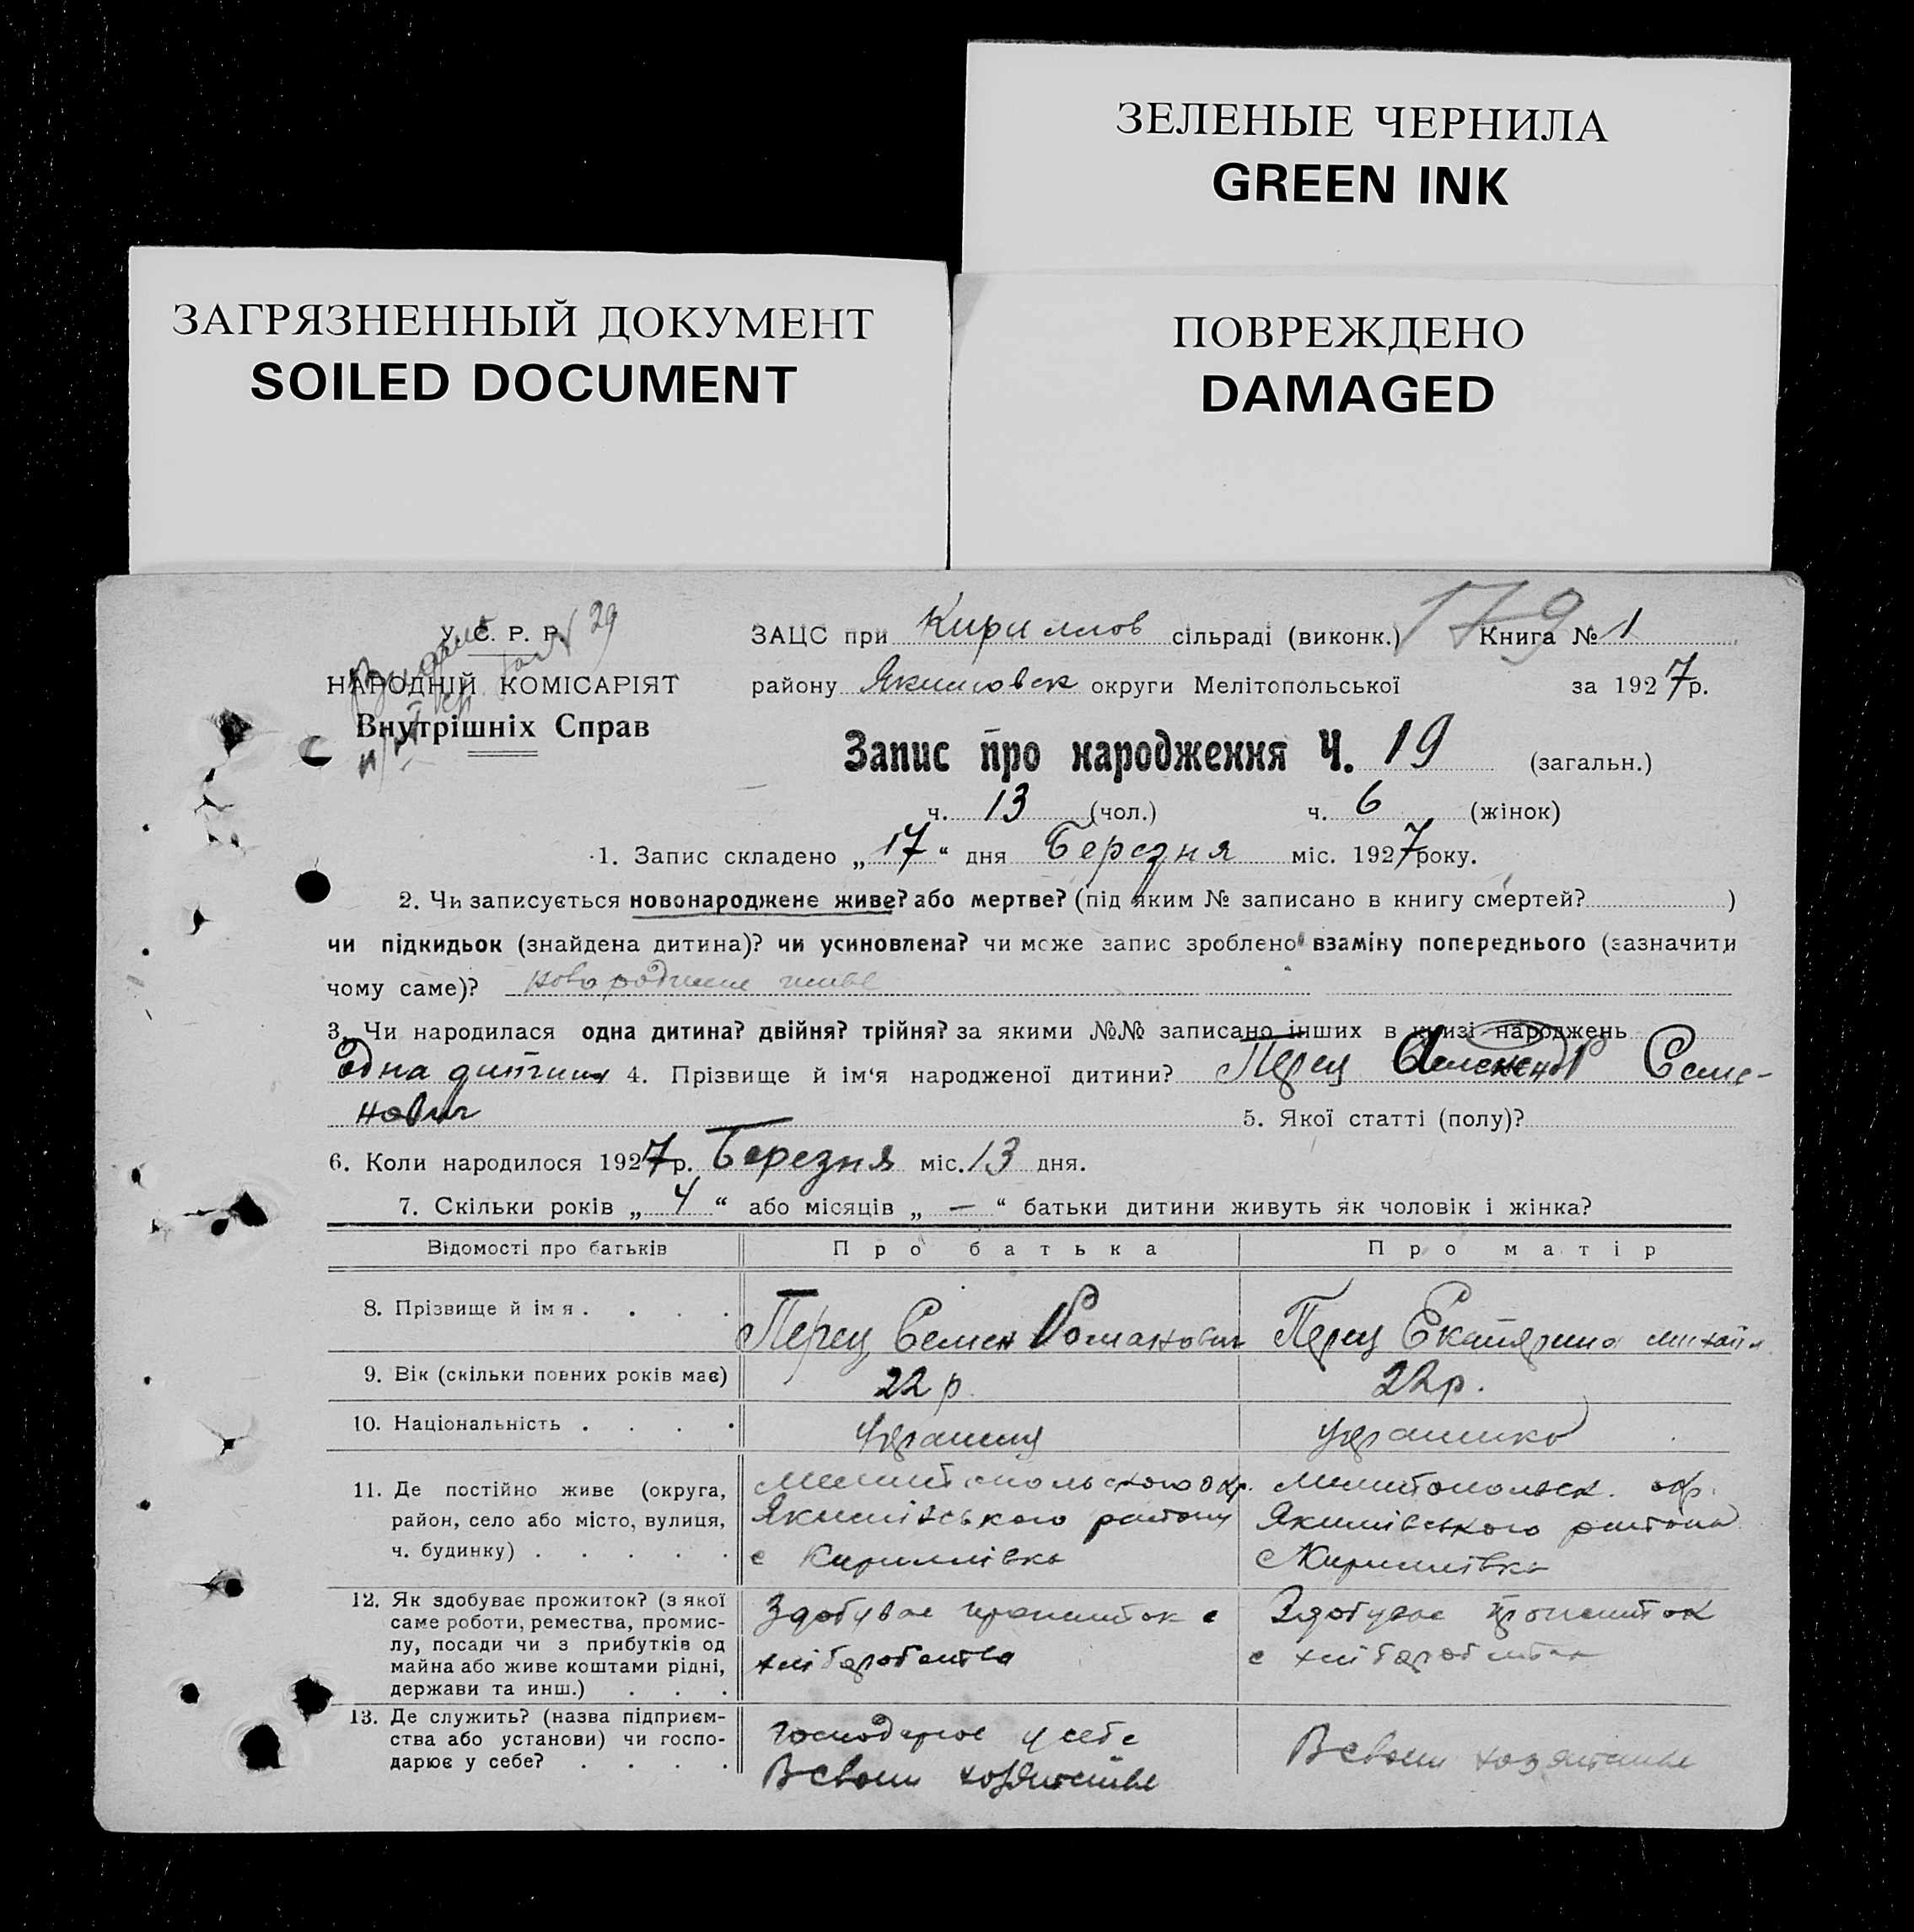 ЗЕЛЕНЫЕ ЧЕРНИЛА
GREEN INK
ЗАГРЯЗНЕННЫЙ ДОКУМЕНТ
SOILED DOCUMENT
ПОВРЕЖДЕНО
DAMAGED
179
У. С. Р. Р.
НАРОДНІЙ КОМІСАРІЯТ
Внутрішніх Справ
ЗАЦС при Кириллов сільраді (виконк.) Книга № 1
району Якимовск округи Мелітопольської за 1927 р.
Запис про народження Ч. 19 (загальн.)
ч. 13 (чол.) ч. 6 (жінок)
1. Запис складено „17“ дня Березня міс. 1927 року.
2. Чи записується новонароджене живе? або мертве? (під яким № записано в книгу смертей? )
чи підкидьок (знайдена дитина)? чи усиновлена? чи може запис зроблено взаміну попереднього (зазначити
чому саме)? живе
3. Чи народилася одна дитина? двійня? трійня? за якими №№ записано інших в книзі народжень
Одна дитина 4. Прізвище й ім‘я народженої дитини? Перец Александр Семе-
нович 5. Якої статті (полу)?
6. Коли народилося 1927 р. Березня міс. 13 дня.
7. Скільки років „ 4 “ або місяців „ — “ батьки дитини живуть як чоловік і жінка?
Відомості про батьків Про батька Про матір
8. Прізвище й імя . . . . Перец Семен Романович Перец Екатярина михайл
9. Вік (скільки повних років має) 22 р. 22 р.
10. Національність . . . . Украинец Украинка
11. Де постійно живе (округа,
район, село або місто, вулиця,
ч. будинку) . . . . .
Мелитопольского окр.
Якимівського району
с Кириллівка
Мелитопольск. окр.
Якимівського района
с Кириллівка
12. Як здобуває прожиток? (з якої
саме роботи, ремества, промис-
лу, посади чи з прибутків од
майна або живе коштами рідні,
держави та инш.) . . .
Здобуває прожиток с
хліборобства
Здобуває прожиток
с хліборобства
13. Де служить? (назва підприєм-
ства або установи) чи госпо-
дарює у себе? . . . .
Господарює у себе
В своем хозяйстве
В своем хозяйстве